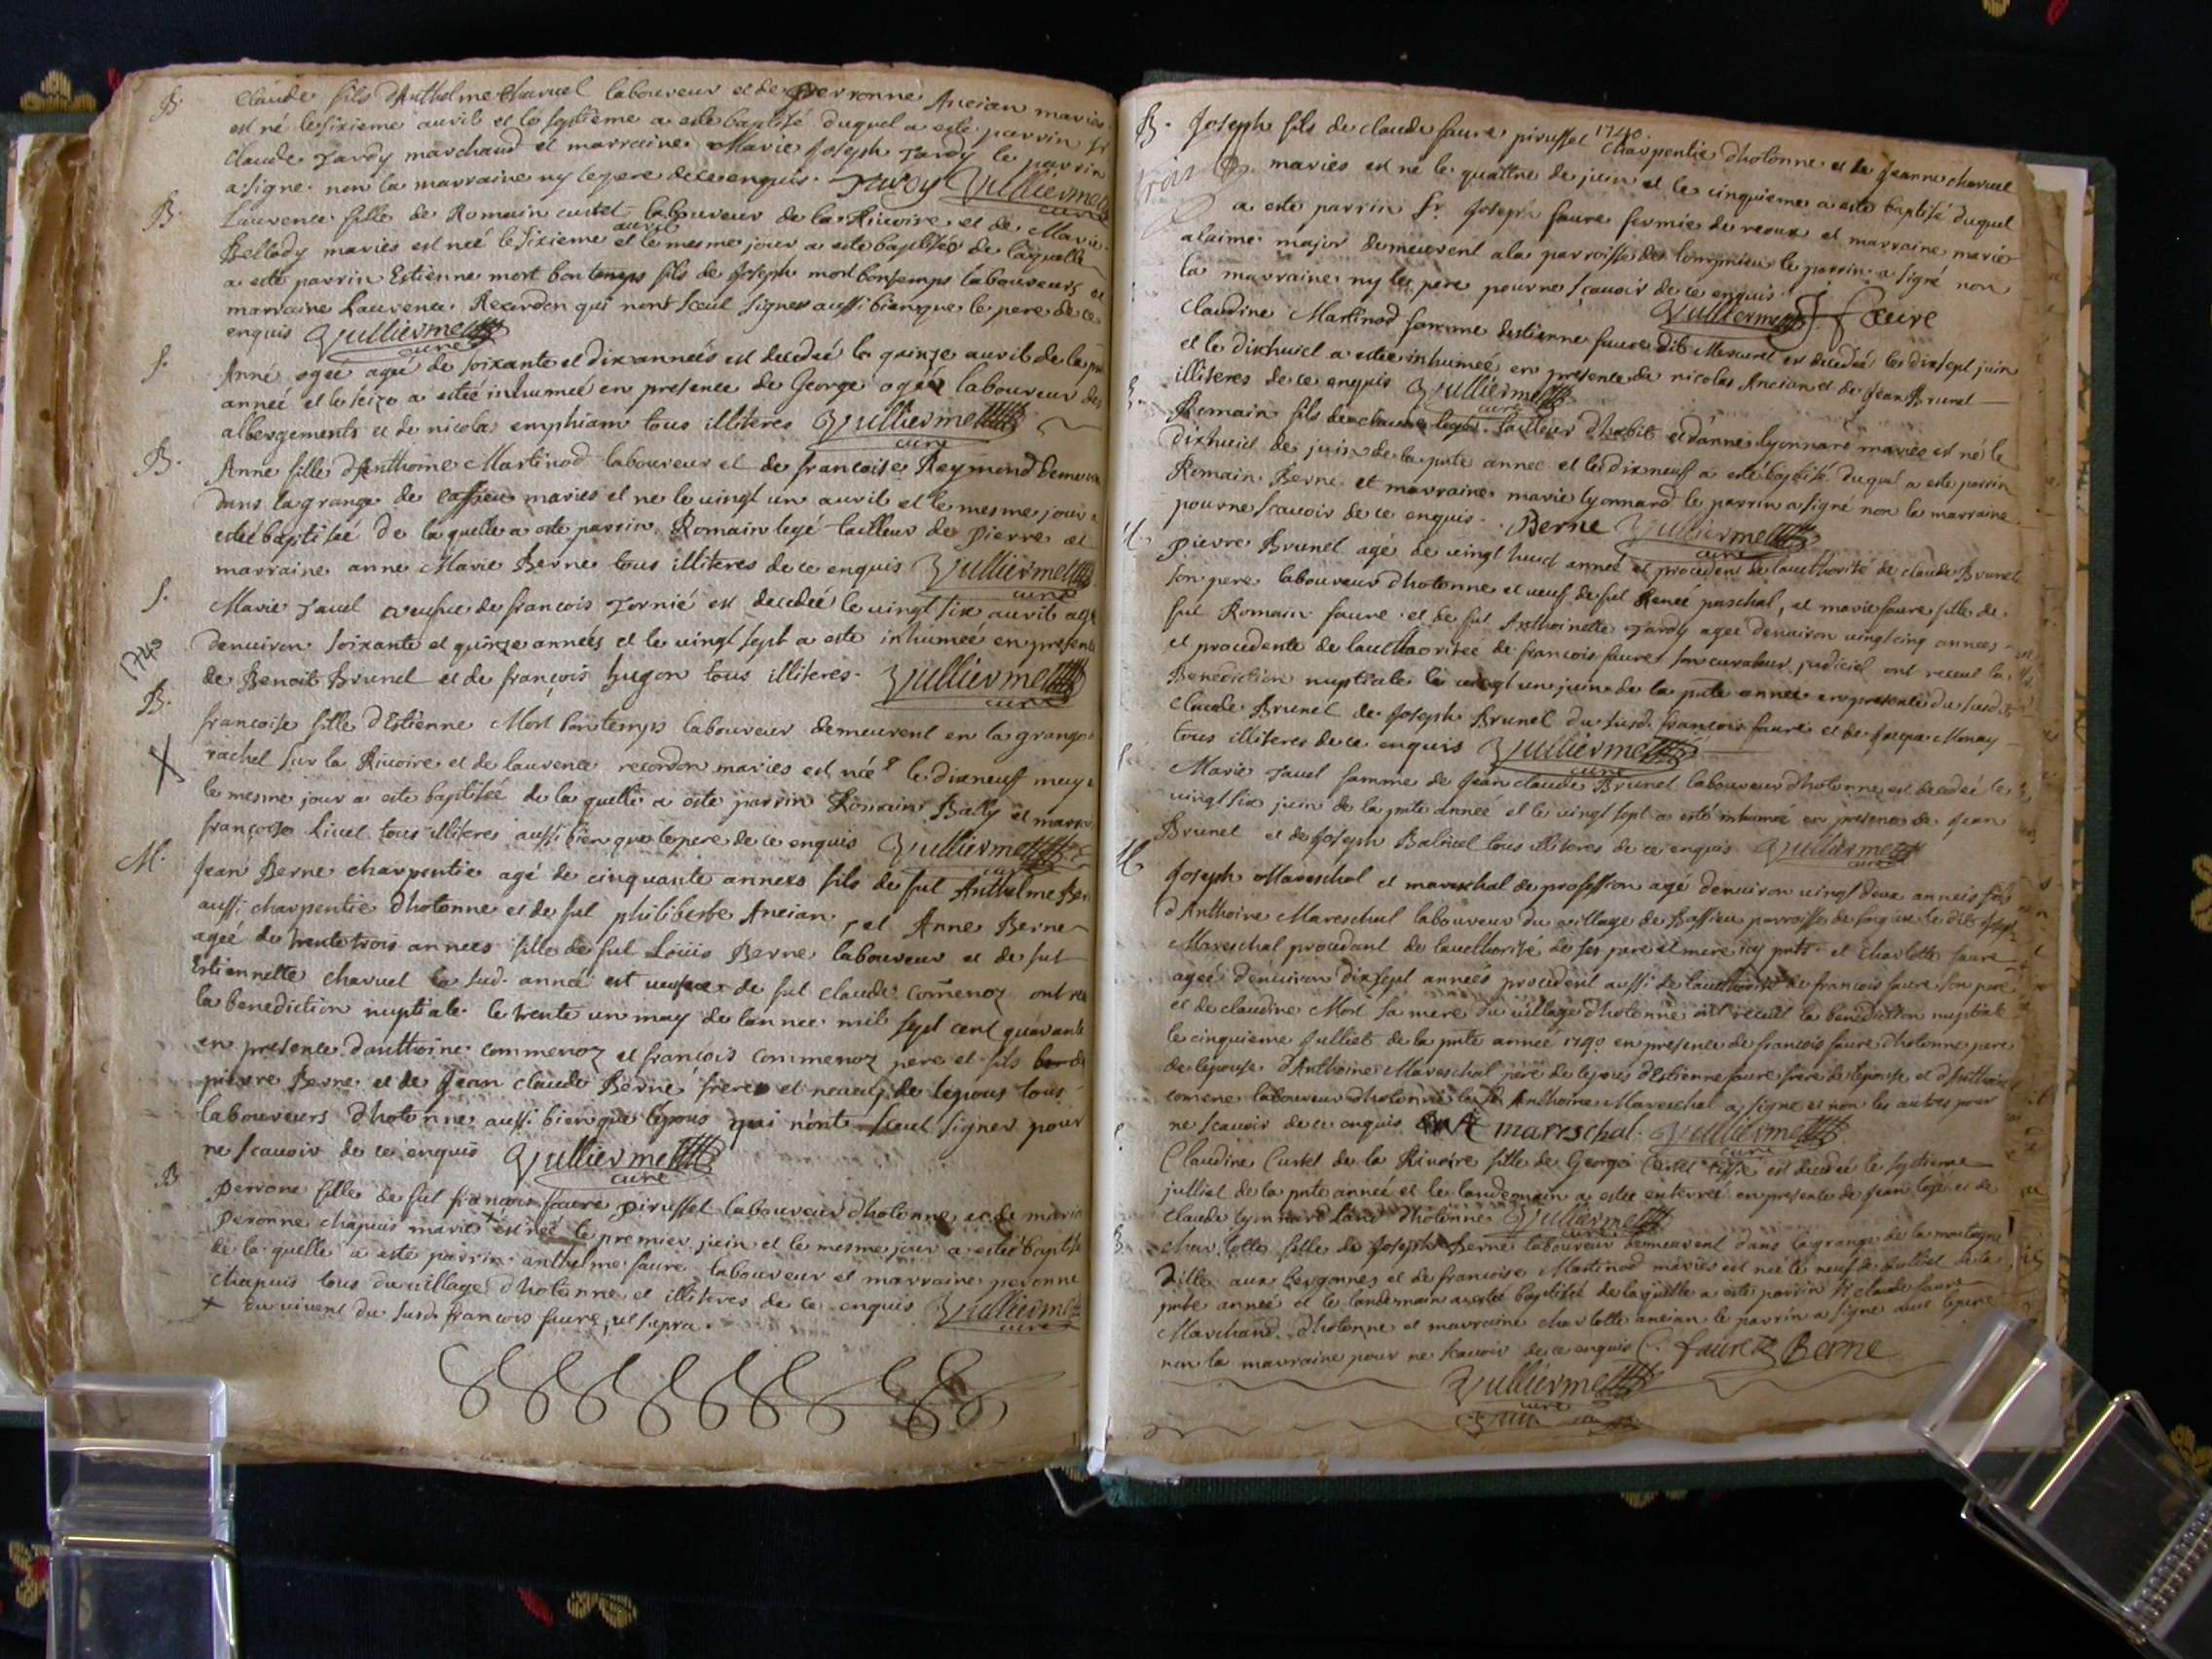 B. Claude fils d'Anthelme Charvel laboureur et de Perronne Ancian maries
est né le sixieme avril et le septième a esté baptisé duquel a este parrin Sr
Claude Tardy marchand et marraine Marie Joseph Tardy le parrin
a signe non la marraine ny le pere de ce enquis. Tardy Vulliermet curé
B. Laurence fille de Romain custet laboureur de la Rivoire et de Marie
Bellody maries est neé le sixieme avril et le mesme jour a este baptisée de laquelle
a esté parrin Estienne mort bontemps fils de Joseph mort bontemps laboureurs et
marraine Laurence Recordon qui nont sceut signer aussi bien que le pere de ce
enquis Vulliermet curé
S. Anne ogée ageé de soixante et dix anneés est decedeé le quinze avril de la pnte
anneé et le seize a esteé inhumeé en presence de George ogée laboureur des
albergements et de nicolas emphiam tous illiteres Vulliermet curé
B. Anne fille d'Anthoine Martinod laboureur et de francoise Reymond demeurant
dans la grange de maries et ne le vingt un avril et le mesme jour a
esté baptiseé de la quelle a este parrin Romain legé tailleur de pierre et
marraine anne Marie Berne tous illiteres de ce enquis Vulliermet curé
S. Marie Tavel veufve de francois Tornié est decedeé le vingt six avril ageé
denviron soixante et quinze anneés et le vingt sept a este inhumee en presence
de Benoit Brunel et de françois hugon tous illiteres. Vulliermet curé
1740
B. francoise fille d'Estienne Mort bontemps laboureur demeurent en la grange
rachel sur la Rivoire et de laurence recordon maries est née le dixneuf may
le mesme jour a este baptiseé de la quelle a este parrin Romain Bally et marraine
françoise Livet tous illiteres aussi bien que le pere de ce enquis Vulliermet curé
M. Jean Berne charpentie agé de cinquante anneés fils de fut Anthelme Berne
aussi charpentie dhotonne et de fut philiberte Ancian, et Anne Berne
ageé de trente trois annees fille de fut Loüis Berne laboureur et de fut
Estiennette charvel la sud. anneé est veufve de fut claude Comenoz ont receu
la benediction nuptiale le trente un may de lannee mil sept cent quarante
en presence danthoine commenoz et francois commenoz pere et fils de
pierre Berne et de Jean claude Berne frere et neveu de lepous tous
laboureurs dhotonne aussi bien que lepous qui nont sceut signer pour
ne scavoir de ce enquis Vulliermet curé
B perrone fille de fut françois faure pirusset laboureur dhotonne et de marie
peronne chapuis maries + est neé le premier juin et le mesme jour a esteé baptisé
de la quelle a este parrin anthelme faure laboureur et marraine peronne
chapuis tous du village dhotonne et illiteres de ce enquis Vulliermet curé
+ du vivent du susd. francois faure, ut supra.
1740.
B. Joseph fils de claude faure pirusset charpentie dhotonne et de Jeanne charvel
maries est ne le quattre de juin et le cinquieme a este baptisé duquel
a esté parrin Sr. Joseph faure fermie de reoux et marraine marie
alaime major demeurent a la parroisse de lompnieu le parrin a signé non
la marraine ny le pere pour ne sçavoir de ce enquis. Vulliermet curé J faure
Claudine Martinod famme destienne faure dit Mesurel est decedeé le dixsept juin
et le dixhuict a esteé inhumeé en presence de nicolas Ancian et de Jean Brunel
illiteres de ce enquis Vulliermet curé
B. Romain fils de claude legé tailleur dhabit et danne lyonnard maries est né le
dixhuict de juin de la pnte annee et le dixneuf a esté baptisé duquel a este parrin
Romain Berne et marraine marie lyonnard le parrin a signé non la marraine
pour ne scavoir de ce enquis. Berne Vulliermet curé
M. pierre Brunel agé de vingt huict anneé et procedent de lauthorité de claude Brunel
son pere laboureur dhotonne et veuf de fut Reneé paschal, et marie faure fille de
fut Romain faure et de fut Anthoinette Tardy ageé denviron vingt cinq annees
et procedente de lauthorisee de francois faure son curateur judiciel ont receut la
Benediction nuptiale le vingt un juin de la pnte annee en presence du susd.
claude Brunel de Joseph Brunel du susd. francois faure et de Monay
tous illiteres de ce enquis Vulliermet curé
Marie Tavel famme de Jean claude Brunel laboureur dhotonne est decedeé le
vingt six juin de la pnte anneé et le vingt sept a esté inhumeé en presence de Jean
Brunel et de Joseph Balivet tous illiteres de ce enquis Vulliermet curé
M. Joseph Mareschal et mareschal de profession agé denviron vingt deux anneés fils
d'Anthoine Mareschal laboureur du village de Bassieu parroisse de songieu le dit Joseph
Mareschal procedant de lauthorité de ses pere et mere icy pnts. et charlotte faure
ageé denviron dixsept anneés procedent aussi de lauthorité de francois faure son pere
et de claudine Mort sa mere du village dhotonne ont receut la benediction nuptiale
le cinquieme Julliet de la pnte anneé 1740 en presence de francois faure dhotonne pere
de lepouse d'Anthoine Mareschal pere de lepous d'Estienne faure frere de lepouse et d'Anthoine
comene laboureur dhotonne le Sr. Anthoine Mareschal a signe et non les autres pour
ne scavoir de ce enquis mareschal. Vulliermet curé
Claudine Custet de la Rivoire fille de George Custet est decedeé le septieme
julliet de la pnte anneé et le landemain a esteé enterreé en presence de Jean legé et de
claude lyonnard dhotonne Vulliermet curé
B. charlotte fille de Joseph Berne laboureur demeurent dans la grange de la montagne
ditte aux bergonnes et de francoise Martinod maries est neé le neuf de Julliet de la
pnte anneé et le landemain a esteé baptisé de la quelle a este parrin Sr claude faure
Marchand dhotonne et marraine charlotte ancian le parrin a signe avec le pere
non la marraine pour ne scavoir de ce enquis C. faure Berne
Vulliermet curé